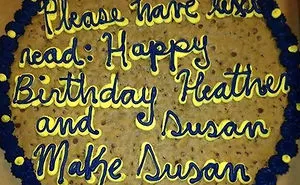 Please have
read: Happy
Birthday Heather
and Susan
Make Susan